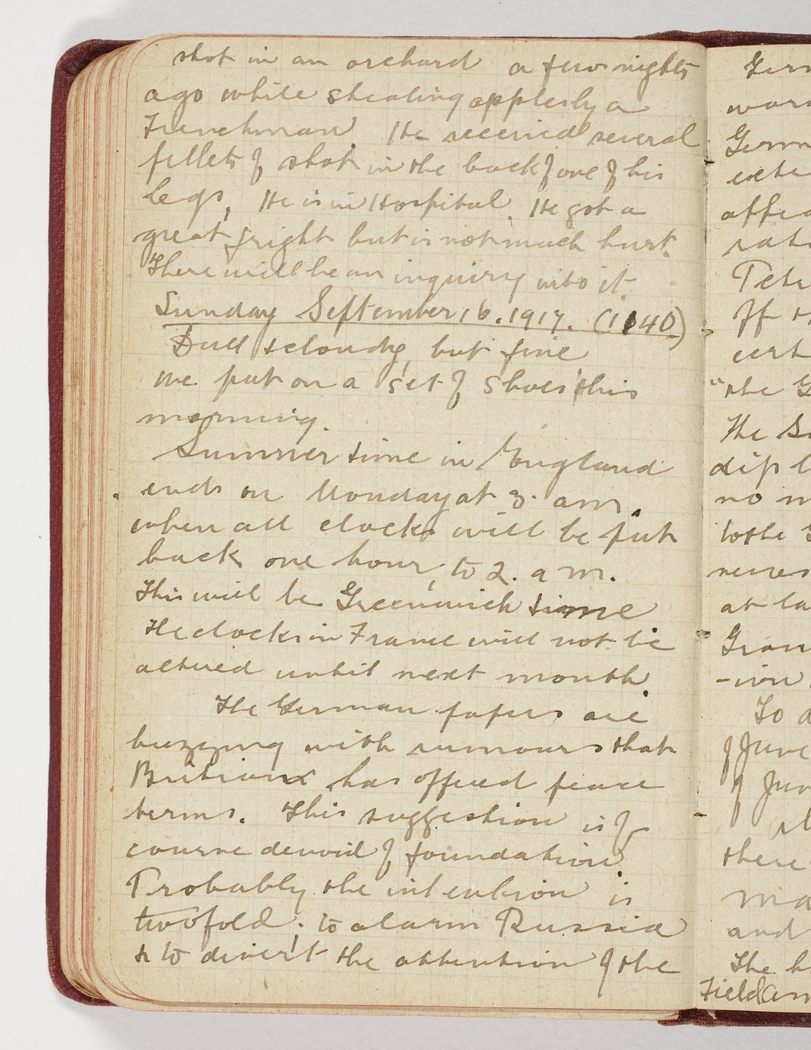 shot in an orchard a few nights
ago while stealing apples by a
Frenchman. He received several
pellets of shot in the back of one of his
legs, He is in Hospital. He got a
great fright but is not much hurt.
There will be an inquiry into it.
Sunday September 16. 1917. (1140)
Dull & cloudy, but fine
we put on a set of shoes this
morning.
Summer time in England
ends on Monday at 3. am.
when all clocks will be put
back one hour, to 2. a m.
This will be Greenwich time
The clocks in France will not be
altered until next month
The German papers are
buzzing with rumours that
Britian has offered peace
terms. This suggestion is of
course devoid of foundation
Probably the intention is
twofold; to alarm Russia
& to divert the attention of the
Germ
Germ
exte
offe
rat
Pet
off
cert
"the G
The
dipl
no m
to the
at la
-ion
To d
of June
of Jun
there
ma
and
The h
Field am